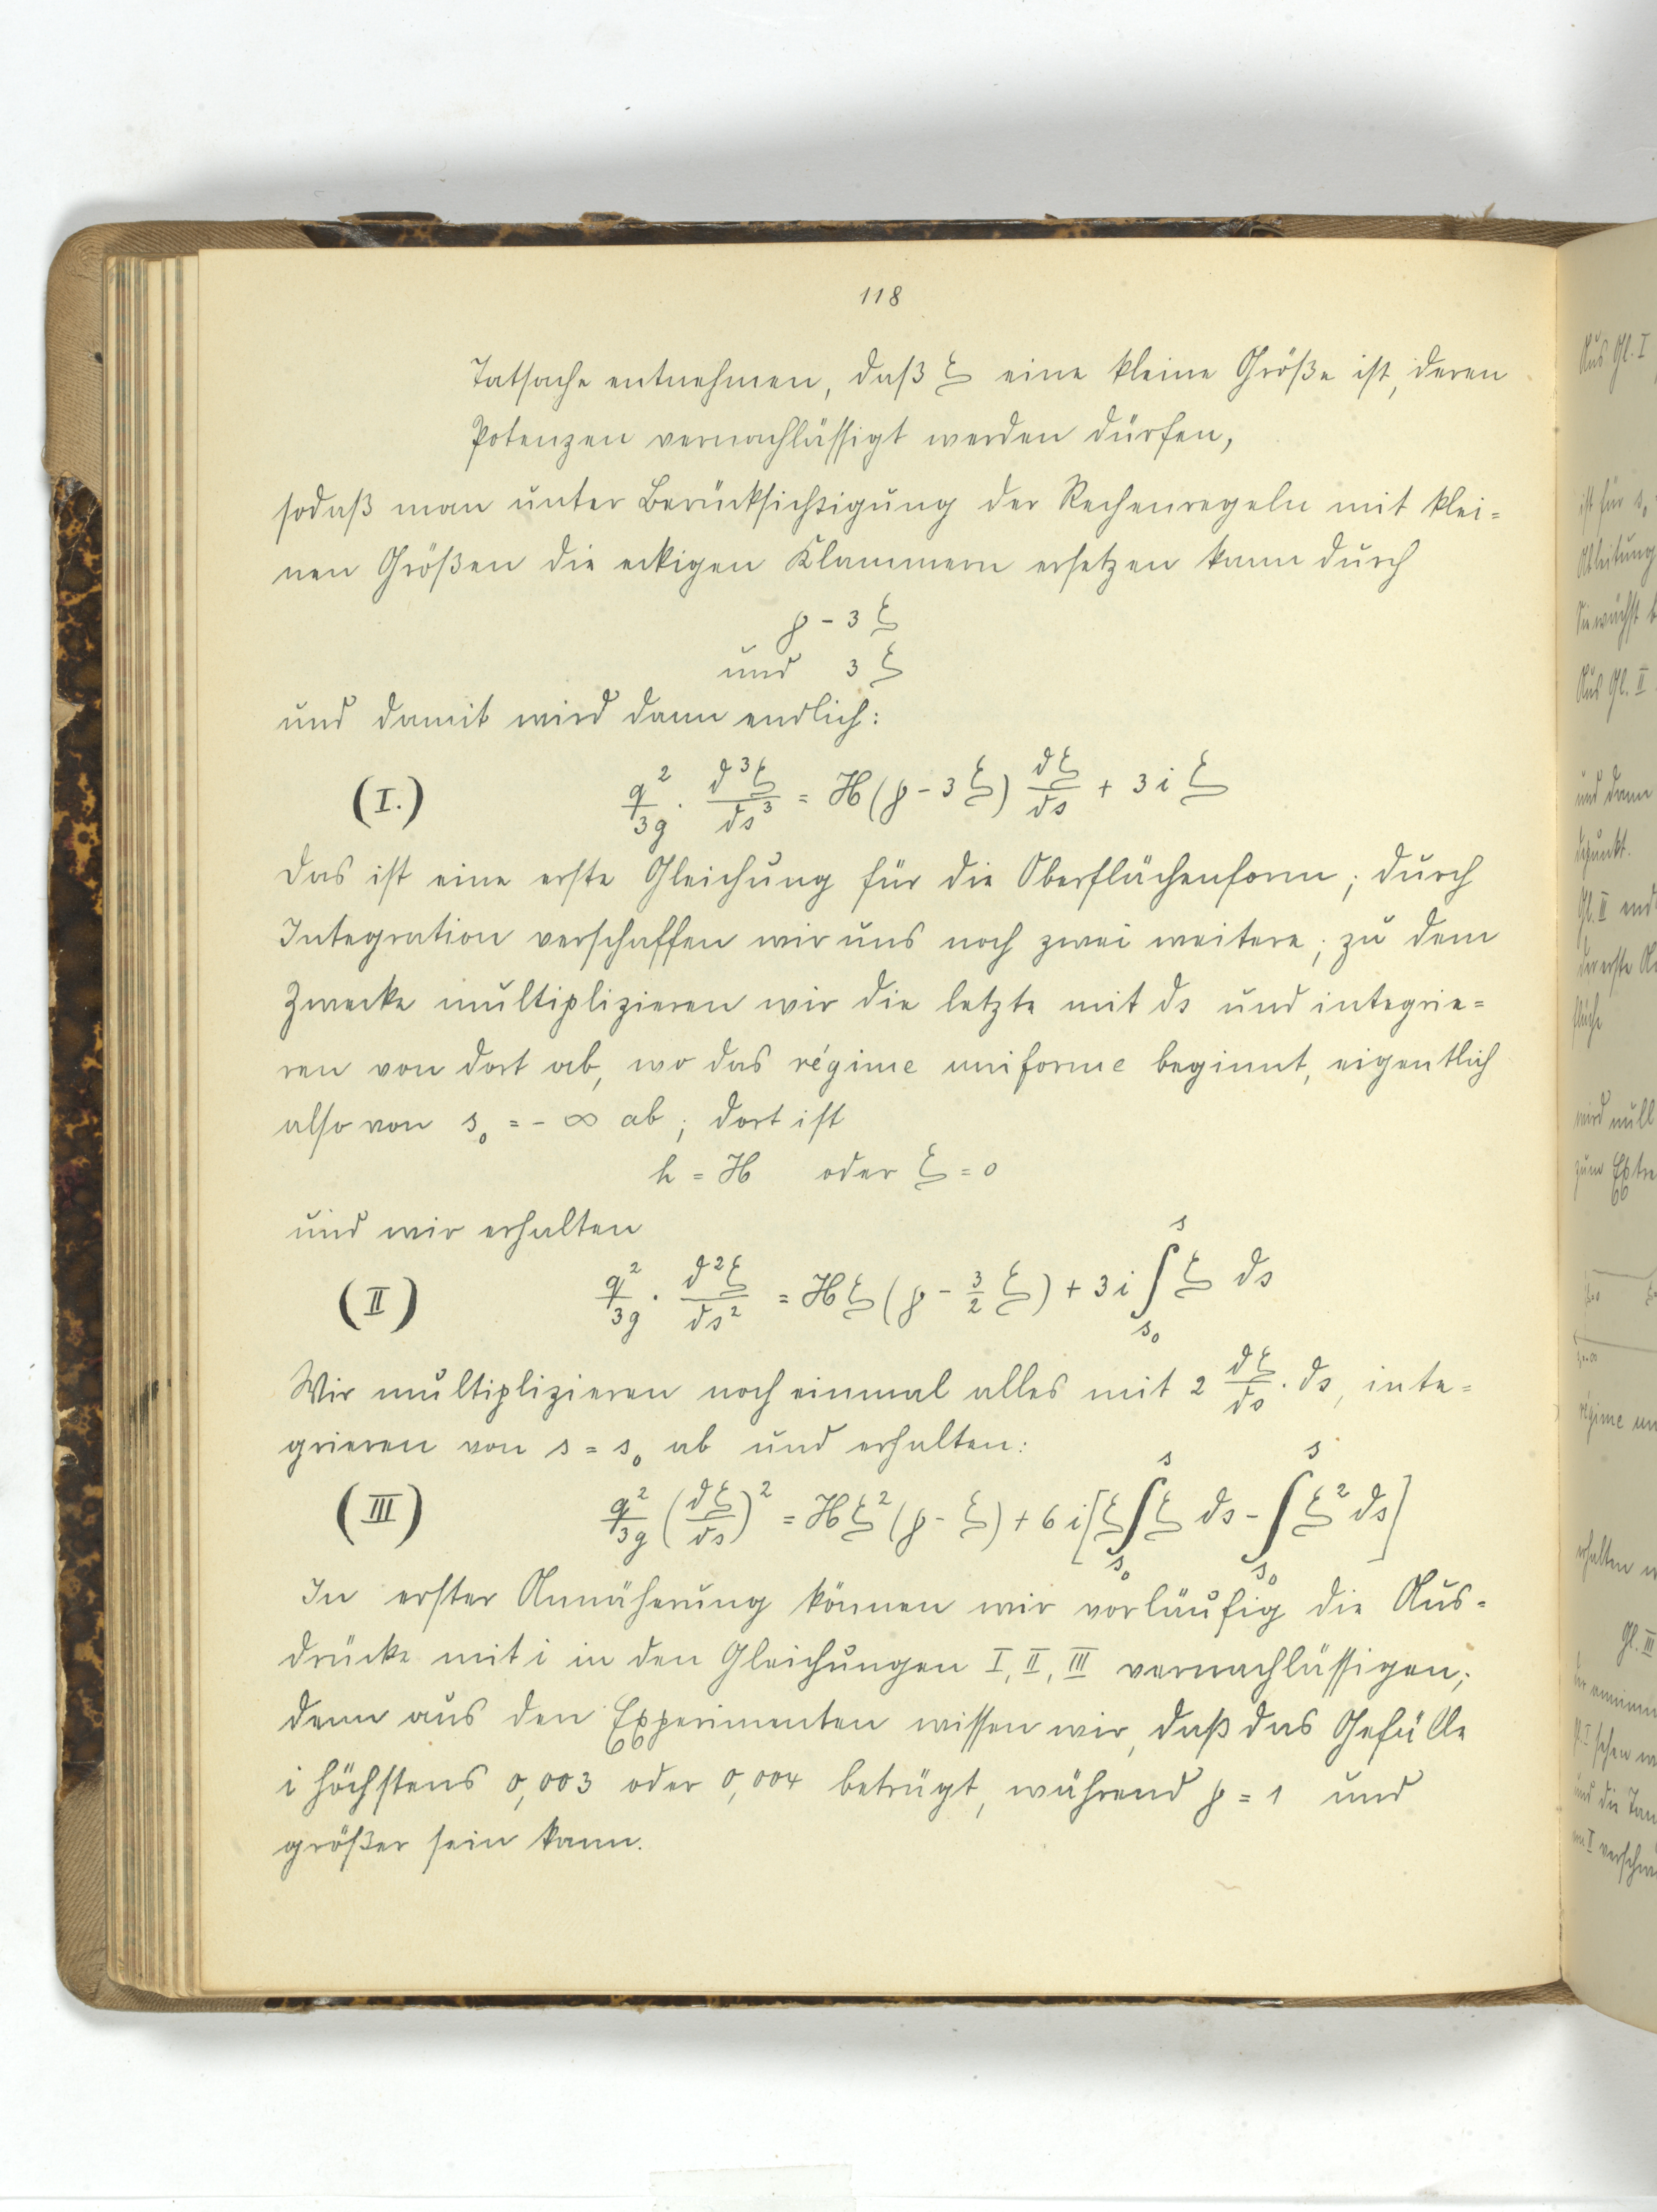 118
Tatsache entnehmen, daß ξ eine kleine Größe ist, deren
Potenzen vernachlässigt werden dürfen,
sodaß man unter Berücksichtigung der Rechenregeln mit klei=
nen Größen die eckigen Klammern ersetzen kann durch
p - 3 ξ
und 3 ξ
und damit wird dann endlich:
(I.) q²/3g · d³ξ/ds³ = H(p - 3 ξ) dξ/ds + 3 i ξ
Das ist eine erste Gleichung für die Oberflächenform; durch
Integration verschaffen wir uns noch zwei weitere; zu dem
Zwecke multiplizieren wir die letzte mit ds und integrie=
ren von dort ab, wo das régime uniforme beginnt, eigentlich
also von s₀ = - ∞ ab; dort ist
h = H oder ξ = 0
und wir erhalten
(II) q²/3g · d²ξ/ds² = Hξ(p - 3/2 ξ) + 3 i ∫_{s₀}^{s} ξ ds
Wir multiplizieren noch einmal alles mit 2 dξ/ds · ds, inte=
grieren von s = s₀ ab und erhalten:
(III) q²/3g (dξ/ds)² = Hξ²(p - ξ) + 6 i[ξ∫_{s₀}^{s} ξ ds - ∫_{s₀}^{s} ξ² ds]
In erster Annäherung können wir vorläufig die Aus=
drücke mit i in den Gleichungen I, II, III vernachlässigen;
denn aus den Experimenten wissen wir, daß das Gefälle
i höchstens 0,003 oder 0,004 beträgt, während p = 1 und
größer sein kann.
Aus Gl. I
ist für s₀
Ableitung
Sie wächst
Aus Gl. II
und dann
Gl. II
der erste
fläche
wird null
zum
régime
erhalten
Gl. III
sehen
und die